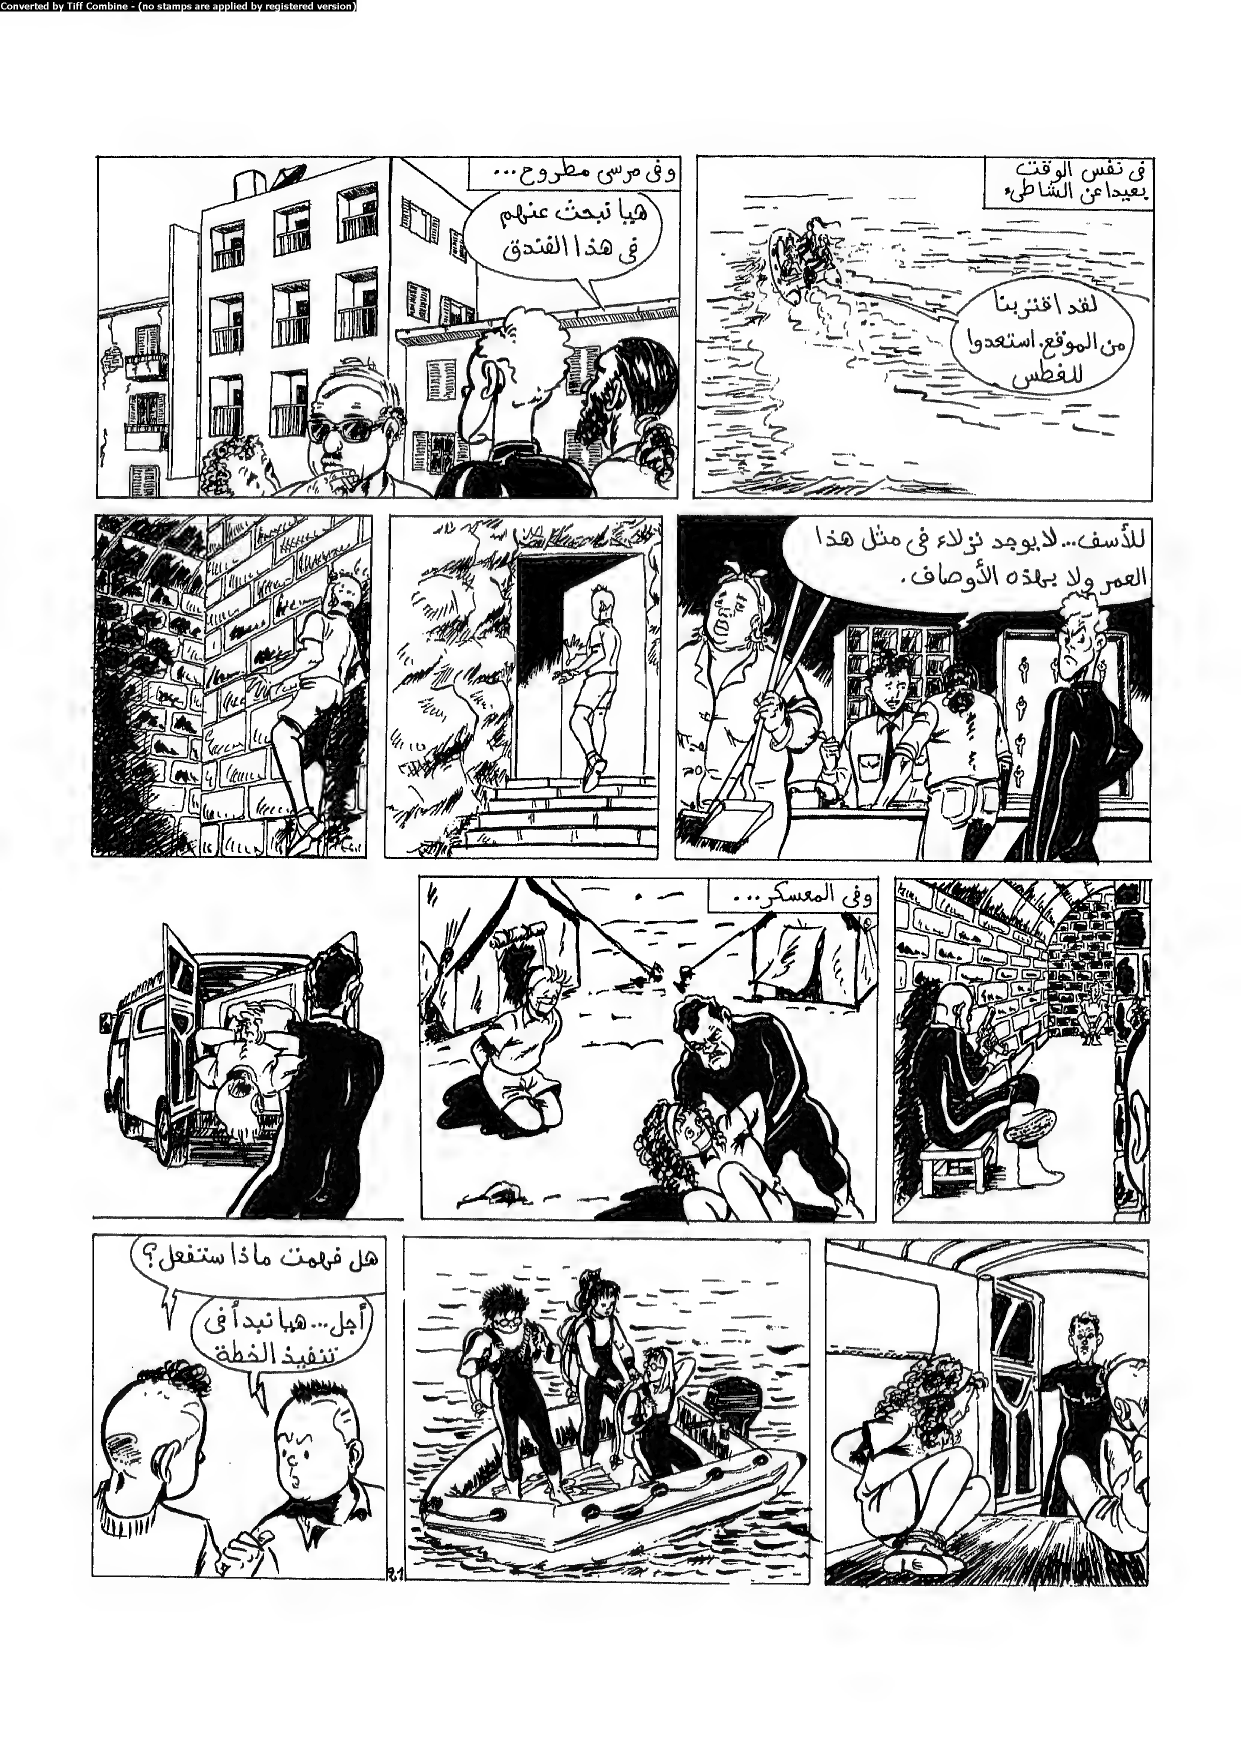 Converted by Tiff Combine - (no stamps are applied by registered version)
فى نفس الوقت
بعيدا عن الشاطىء
لقد اقتربنا
من الموقع. استعدوا
للغطس
وفى مرسى مطروح...
هيا نبحث عنهم
فى هذا الفندق
للأسف... لا يوجد نزلاء فى مثل هذا
العمر ولا بهذه الأوصاف.
وفى المعسكر...
هل فهمت ماذا ستفعل؟
أجل... هيا نبدأ فى
تنفيذ الخطة